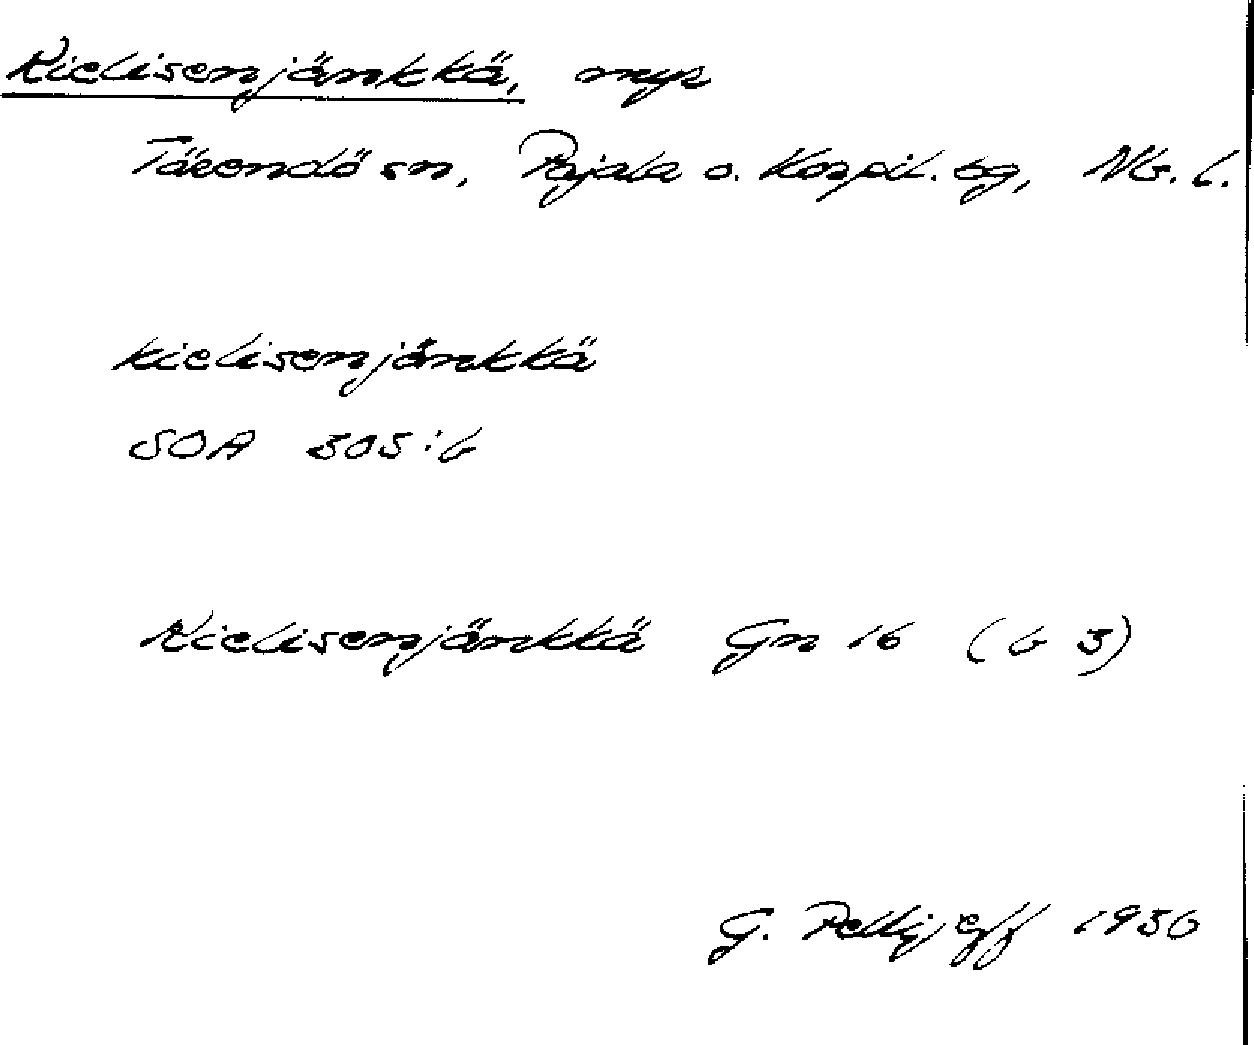 Kielisenjänkkä, myr
Tärendö sn, Pajala o. Korpil. tg, Nb. l.
kielisenjänkkä
SOA 303:6
Kielisenjänkkä Gn 16 (b 3)
G. Pellijeff 1956